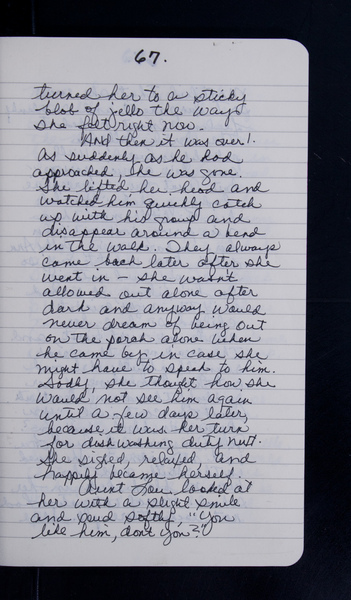 67.
turned her to a sticky
blob of jello the way
she felt right now.
And then it was over!
As suddenly as he had
approached, she was gone.
She lifted her head and
watched him quickly catch
up with his group and
disappear around a bend
in the walk. They always
came back later after she
went in – she wasn't
allowed out alone after
dark and anyway would
never dream of being out
on the porch alone when
he came by, in case she
might have to speak to him.
Sadly, she thought how she
would not see him again
until a few days later,
because it was her turn
for dishwashing duty next.
She sighed, relaxed, and
happily became herself.
Aunt Lou looked at
her with a slight smile
and said softly, "You
like him, don't you?"